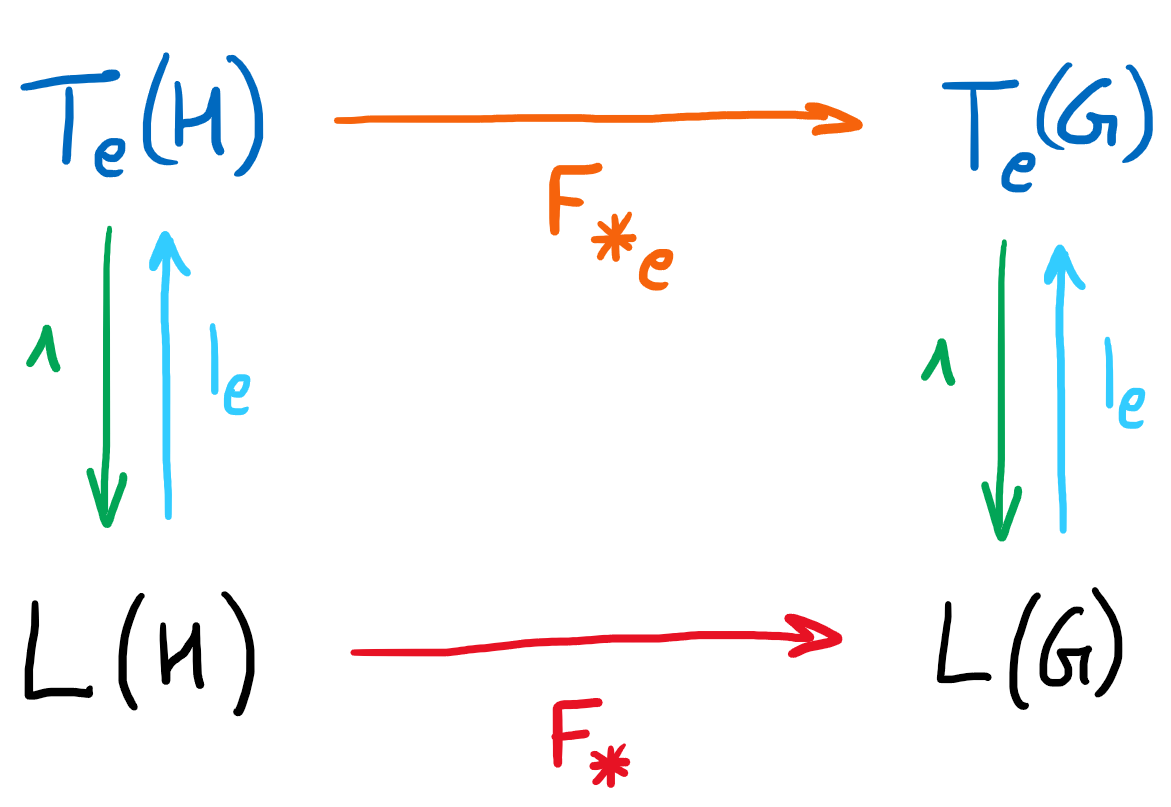 Tₑ(H) Tₑ(G)
F*ₑ
ʌ |ₑ ʌ |ₑ
L(H) L(G)
F*